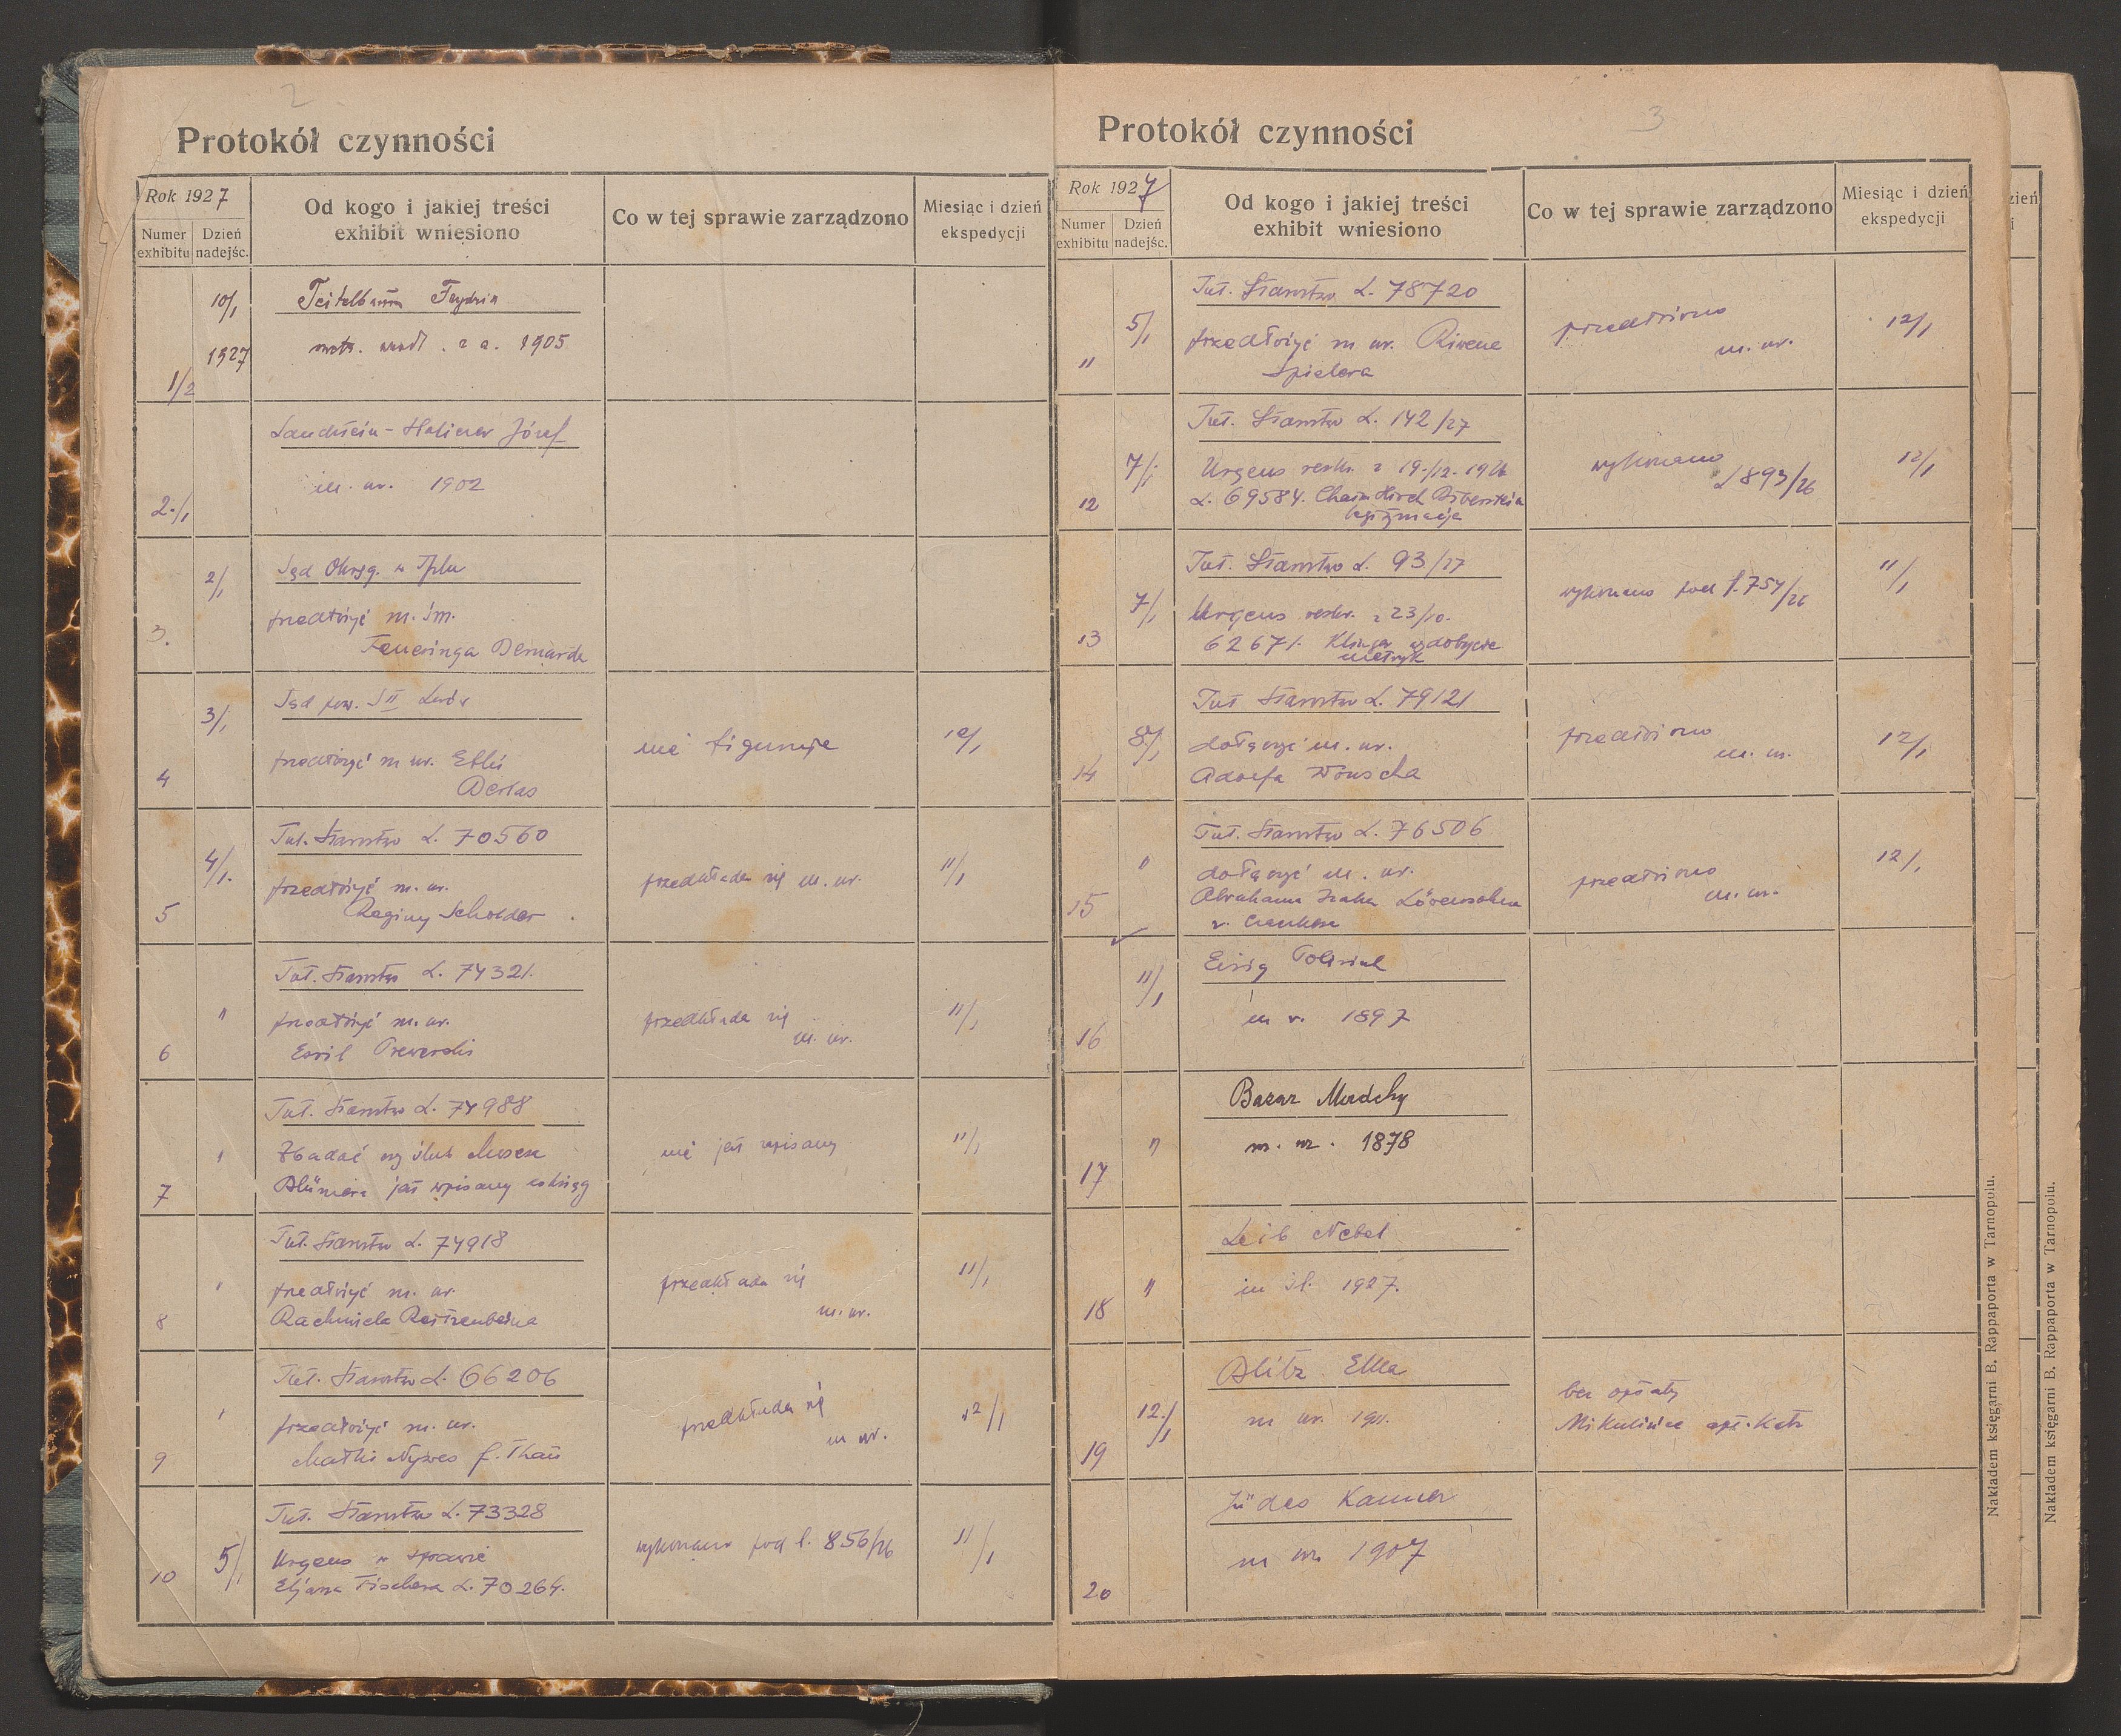 2
Protokół czynności
Rok 1927
Numer exhibitu
Dzień nadejśc.
Od kogo i jakiej treści
exhibit wniesiono
Co w tej sprawie zarządzono
Miesiąc i dzień
ekspedycji
10/1
Teitelbaum
1927
1905
1/2
Józef
m. ur. 1902
2./1
2/1
Sąd Okręg. w Tplu
przedłożyć m. śm.
3.
Bernarda
3/1
Sąd pow. S II Lwów
przedłożyć m ur. Etli
4
nie figuruje
10/1
Tut. Starostwo L. 70560
4/1.
przedłożyć m. ur.
Reginy Scholder
5
przedkłada się m. ur.
11/1
Tut. Starostwo L. 74321.
"
przedłożyć m. ur.
6
przedkłada się
m. ur.
11/1
Tut. Starostwo L. 74988
Zbadać czy ślub Mosesa
jest wpisany
7
nie jest wpisany
11/1
Tut. Starostwo L. 74918
przedłożyć m. ur.
Rachmiela
8
przedkłada się
m. ur.
11/1
Tut. Starostwo L. 66206
przedłożyć m. ur.
9
przedkłada się
m ur.
12/1
Tut. Starostwo L. 73328
5/1
Urgens w sprawie
Eljasza Fischera L. 70264.
10
wykonano pod l. 856/26
11/1
3
Protokół czynności
Rok 1927
Numer exhibitu
Dzień nadejśc.
Od kogo i jakiej treści
exhibit wniesiono
Co w tej sprawie zarządzono
Miesiąc i dzień
ekspedycji
Tut. Starostwo L. 78720
5/1
przedłożyć m ur.
Spielera
11
przedłożono
m. ur.
12/1
Tut. Starostwo L. 142/27
7/1
Urgens reskr. z 19./12. 1926
L. 69584. Chaim Hirsch
legitymacja
12
wykonano
L 893/26
12/1
Tut. Starostwo L. 93/27
7/1
Urgens reskr. z 23/10.
62671. Klinger wydobycie
metryk
13
wykonano pod l. 757/26
11/1
Tut Starostwo L. 79121
8/1
dołączyć m. ur.
Adolfa
14
przedłożono
m. ur.
12/1
Tut. Starostwo L. 76506
"
dołączyć m. ur.
Abrahama
15
przedłożono
m. ur.
12/1
Eisig
11/1
1897
16
Bazar
"
m. ur. 1878
17
Leib Nebel
"
m śl. 1927.
18
Blitz Elka
12./1
m ur.
bez opłaty
Mikulińce
19
Judes Kanner
m ur. 1907
20
Nakładem księgarni B. Rappaporta w Tarnopolu.
Nakładem księgarni B. Rappaporta w Tarnopolu.